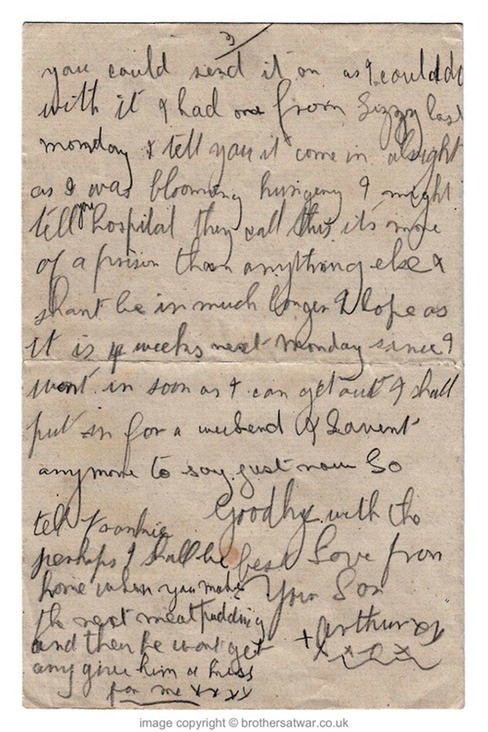 3
you could send it on as I could do
with it I had one from Lizzy last
monday I tell you it come in alright
as I was blooming hungery I might
tell you hospital they call this its more
of a prison than anything else I
shant be in much longer I hope as
it is 4 weeks next Monday since I
went in soon as I can get out I shall
put in for a weekend I havent
anymore to say just now So
Goodbye with the
best Love from
Your Son
Arthur xx
+ x x x x
tell Frankie
perhaps I shall be
home when you make
the next meat pudding
and then he wont get
any give him a kiss
for me xxxx
image copyright © brothersatwar.co.uk